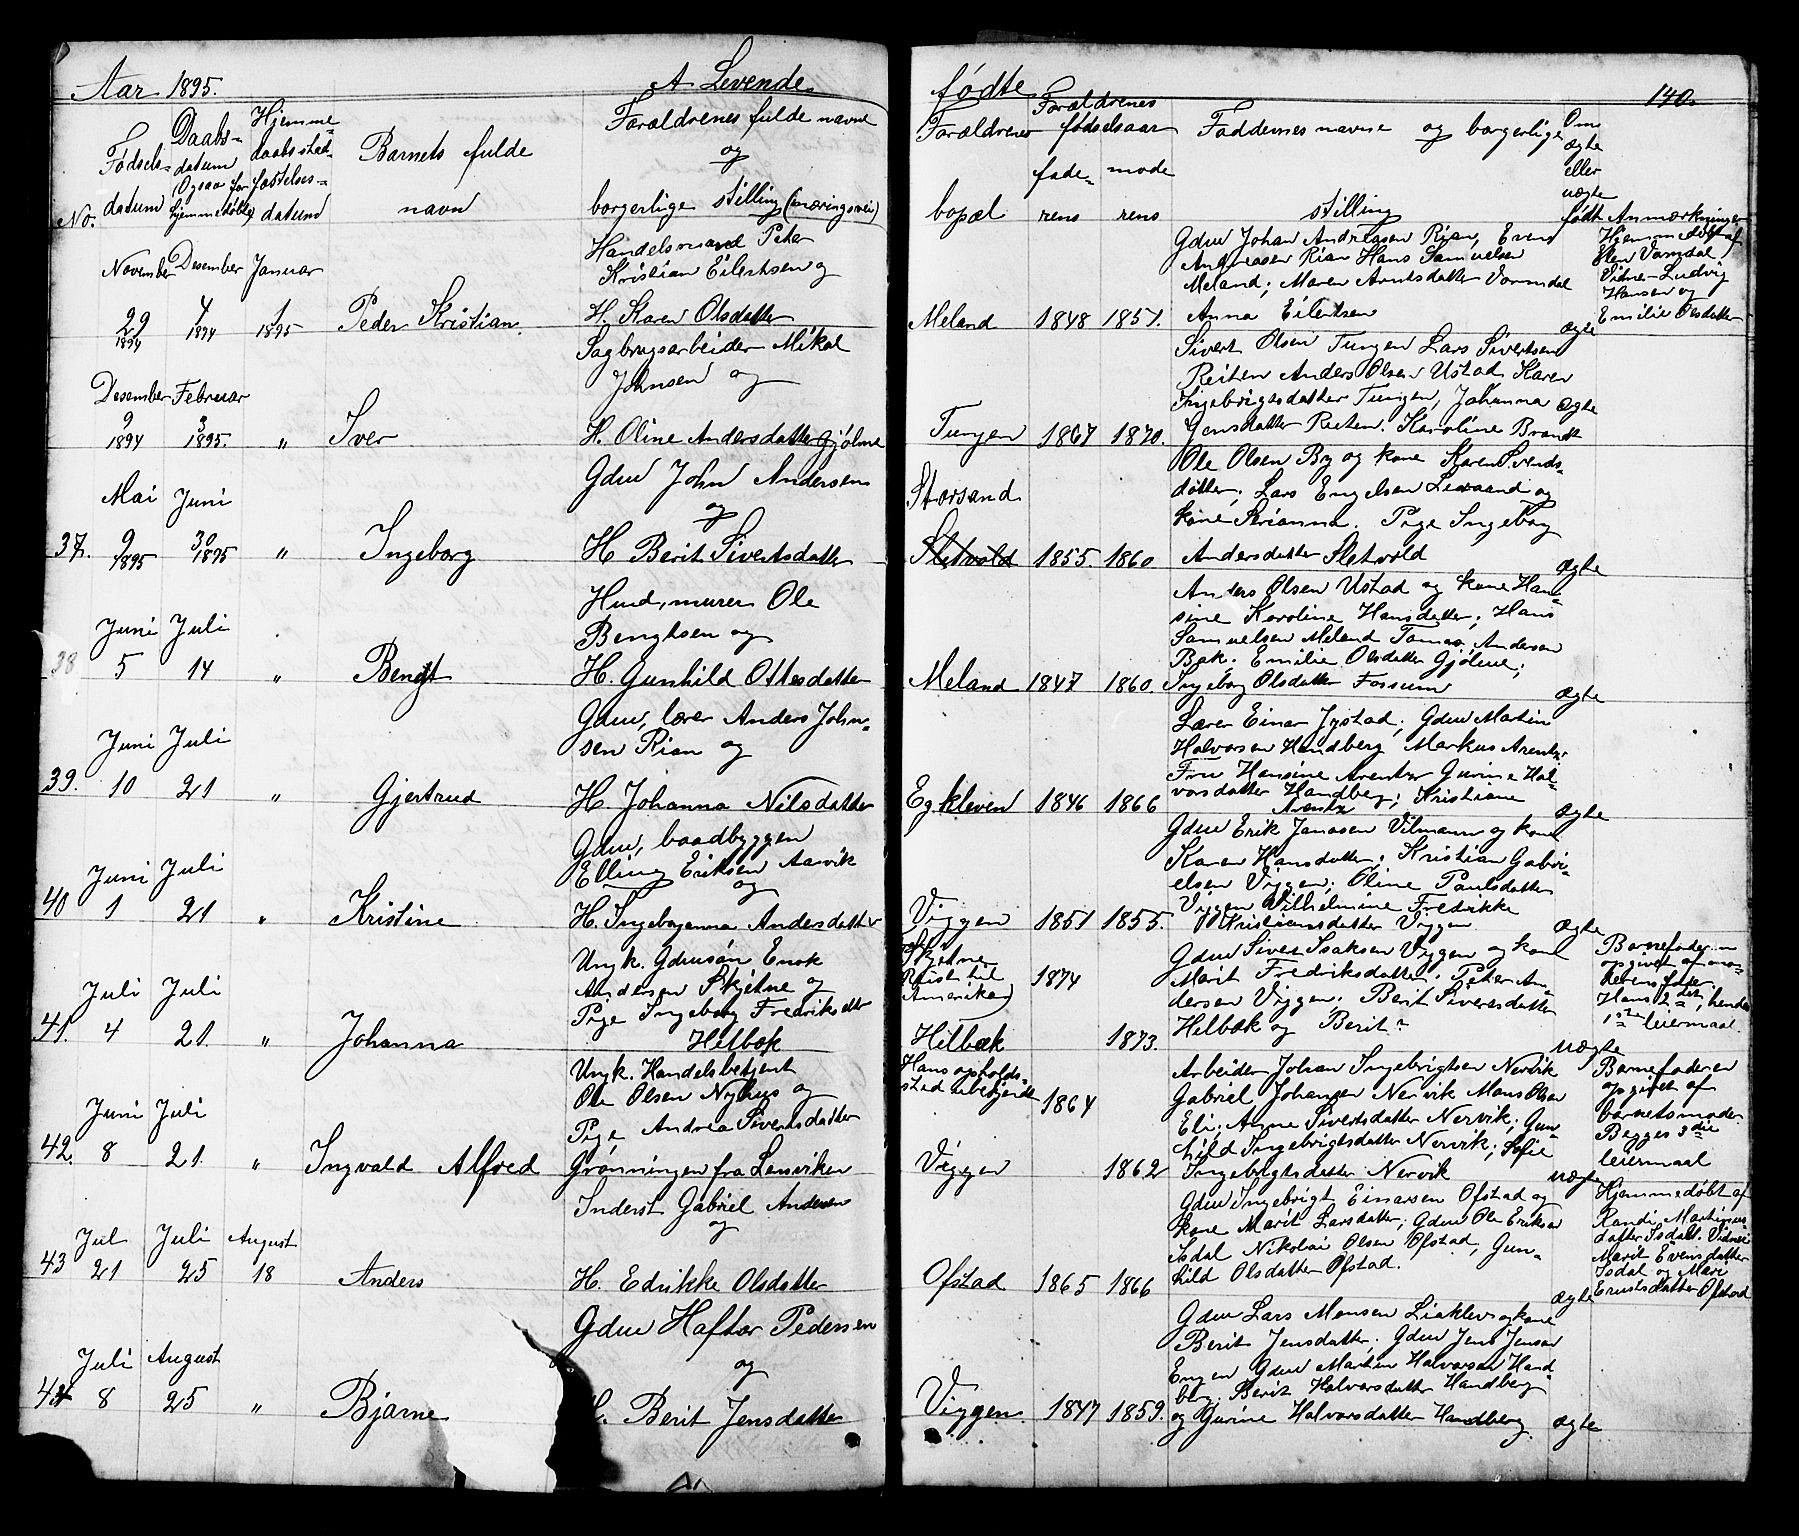 Aar 1895.
A Levende
No.
Fødsels-
datum
Daabs-
datum
Ogsaa for
hjemmedøbte
Hjemme-
daabs sted-
fæstelses-
datum
Barnets fulde
navn
Forældrenes fulde navne
og
borgerlige stilling (næringsvei)
November Desember Januar
29 4 1
1894 1894 1895
Peder Kristian.
Handelsmand Peter
Kristian Eilertsen og
H. Karen Olsdatter
Desember Februar
9 3
1894 1895. "
Iver
Sagbrugsarbeider Mikal
Johnsen og
H. Oline Andersdatter Gjølme
Mai Juni
37. 9 30
1895 1895 "
Ingeborg
Gdm John Andersen
og
H Berit Sivertsdatter
Juni Juli
38 5 14 "
Bengt
Husd, murer Ole
Bengtsen og
H. Gunhild Ottesdatter
Juni Juli
39. 10 21 "
Gjertrud
Gdm, lærer Anders John-
sen Rian og
H Johanna Nilsdatter
Juni Juli
40 1 21 "
Kristine
Gdm, baadbyggen
Elling Eriksen Aarvik
og
H. Ingeborganna Andersdatter
Juli Juli
41. 4 21. "
Johanna
Ungk. Gdmsøn Enok
Andersen Skjetne og
Pige Ingeborg Fredriksdtr
Hilbæk
Juni Juli
42. 8 21. "
Ingvald Alfred
Ungk. Handelsbetjent
Ole Olsen Nyhus og
Pige Andrea Sivertsdatter
Grønningen fra Lensviken
Jul Juli August
43 21 25 18
Anders
Inderst Gabriel Andersen
og
H. Edrikke Olsdatter
Juli August
44 8 25 "
Bjarne
Gdm Haftor Pedersen
og
H. Berit Jensdatter
fødte
140.
Forældrenes
bopæl
Forældrenes
fødselsaar
fade- mode
rens rens
Faddernes navne og borgerlige
stilling
Om
ægte
eller
uægte
født
Anmærkninger
Meland 1848 1851.
Gdm Johan Andreasen Rian, Even
Andreasen Rian Hans Samuelsen
Meland; Maren Arntsdatter Vormdal
Anna Eilertsen
ægte
Hjemmedøbt af
Elen Vormdal
Vidner Ludvig
Hansen og
Emilie Olsdatter
Tungen 1867 1870.
Sivert Olsen Tungen Lars Sivertsen
Reiten Anders Olsen Ustad Karen
Ingebrigtsdatter Tungen, Johanna
Jensdatter Reiten. Karoline Brandt
ægte
Storsand
Sletvold 1855. 1860
Ole Olsen By og kone Karen Svends-
datter; Lars Engelsen Lexaand og
kone Arianna. Pige Ingeborg
Andersdatter Sletvold
ægte
Meland 1847 1860.
Anders Olsen Ustad og kone Han-
sine Karoline Hansdatter; Hans
Samuelsen Meland Tomas Andersen
Bak. Emilie Olsdatter Gjölme;
Ingeborg Olsdatter Fossum
ægte
Egkleven 1846 1866
Lærer Einar Jystad; Gdm Martin
Halvorsen Handberg Markus Arentz.
Fru Hansine Arentz Gurine Hal-
vorsdatter Handberg; Kristiane
Arentz
ægte
Viggen 1851 1855.
Gdm Erik Jonassen Vilmann og kone
Karen Hansdatter; Kristian Gabri-
elsen Viggen; Oline Paulsdatter
Viggen Vilhelmine Fredrikke
Kristiansdatter Viggen
ægte
Skjetne
(Reist til
Amerika) 1874
Hilbæk 1873.
Gdm Siver Isaksen Viggen og kone
Marit Fredriksdatter. Peter An-
dersen Viggen; Berit Siversdatter
Hilbæk og Berit?
uægte
Barnefaderen
opgivet af mo-
derens fader.
Hans 2det, hendes
1ste leiermaal.
Hans opholds-
sted ubekjendt 1864
Viggen 1862
Arbeider Johan Ingebrigtsen Nervik
Gabriel Johansen Nervik Mons Olsen
Eli; Anne Sivertsdatter Nervik; Gun-
hild Ingebrigtsdatter Nervik; Sofie
Ingebrigtsdatter Nervik
uægte
Barnefaderen
opgivet af
barnetsmoder
Begges 3die
leiermaal
Ofstad 1865 1866
Gdm Ingebrigt Einarsen Ofstad og
kone Marit Larsdatter; Gdm Ole Eriksen
Isdal Nikolai Olsen Ofstad, Gun-
hild Olsdatter Ofstad.
ægte
Hjemmedøbt af
Randi Martinus-
datter Isdal. Vidner
Marit Evensdatter
Isdal og Mari
Ernstsdatter Ofstad
Viggen. 1847 1859.
Gdm Lars Monsen Liaklev og kone
Berit Jensdatter; Gdm Jens Jensen
Engen Gdm Martin Halvorsen Hand-
berg. Berit Halvorsdatter Handberg
og Gurine Halvorsdatter Handberg.
ægte